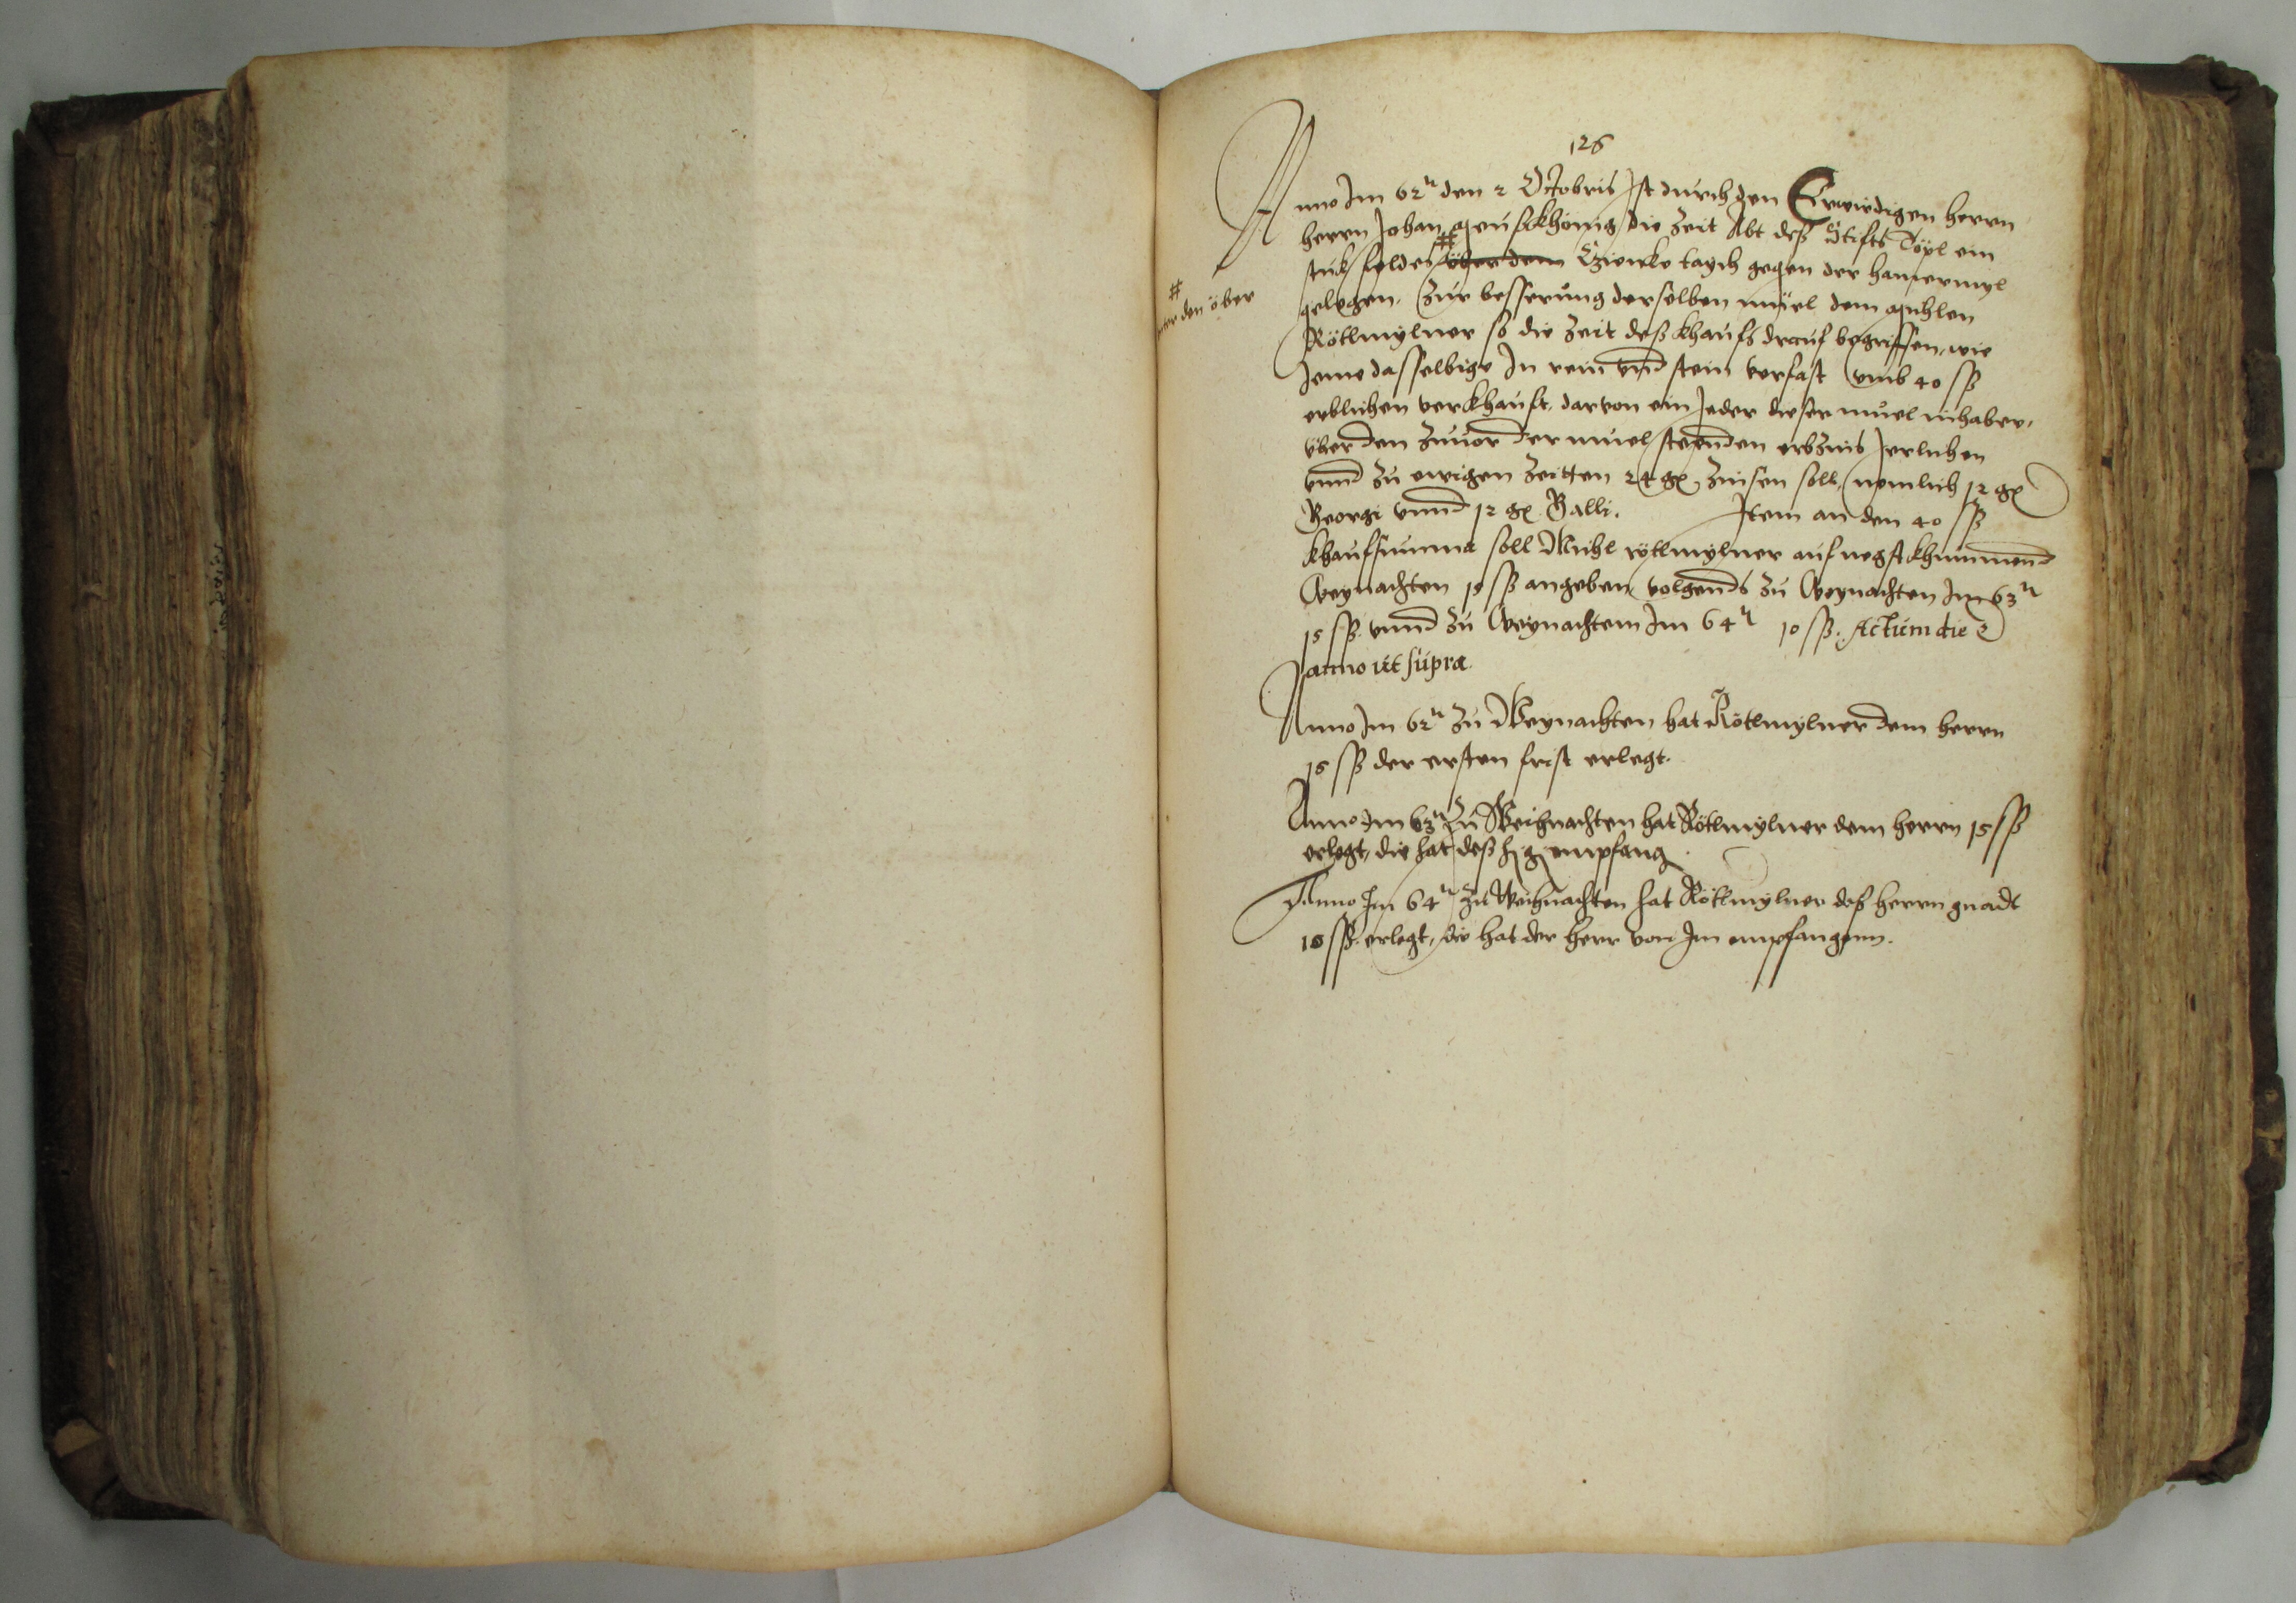 126
Anno Im 62ᵗⁿ den 2 Octobris Ist durch den Erwirdigen herrn
herrn Johan die Zeit Abt deß Stifts Töpl ein
stuk feldes # über dem taych gegen der hamermyl
# den öber
gelegen, Zur besserung derselben müel dem
Rötlmÿlner so die Zeit deß khaufs drauf begriffen, wie
Jeme dasselbige In rein vnd stein verfast vmb 40 ſß
erblichen verkhauft, darvon ein Jeder dieser müel inhaber,
über den Zuuor der muel steenden erbzins Jerlichen
vnnd Zu ewigen Zeitten 24 gꝝ Zinsen soll, nemlich 12 gꝝ
Georgi vnnd 12 gꝝ Galli. Item an den 40 ſß
khaufsumma soll rötlmÿlner auf negstkhummend
Weynachten 15 ſß angeben, volgends zu Weynachten Im 63ᵗⁿ
15 ſß. vnnd Zu Weynachten Im 64ᵗⁿ 10 ſß. Actum die
anno ut supra.
Anno Im 62ᵗⁿ Zu Weynachten hat Rötlmÿlner dem herrn
15 ſß der ersten frist erlegt.
Anno Im 63ᵗⁿ Zu Weihnachten hat Rötlmÿlner dem herrn 15 ſß
erlegt, die hat deß h g empfang
Anno Im 64ᵗⁿ Zu Weihnachten hat Rötlmÿlner deß herrn gnadt
10 ſß. erlegt, die hat der herr von Im empfangenn.